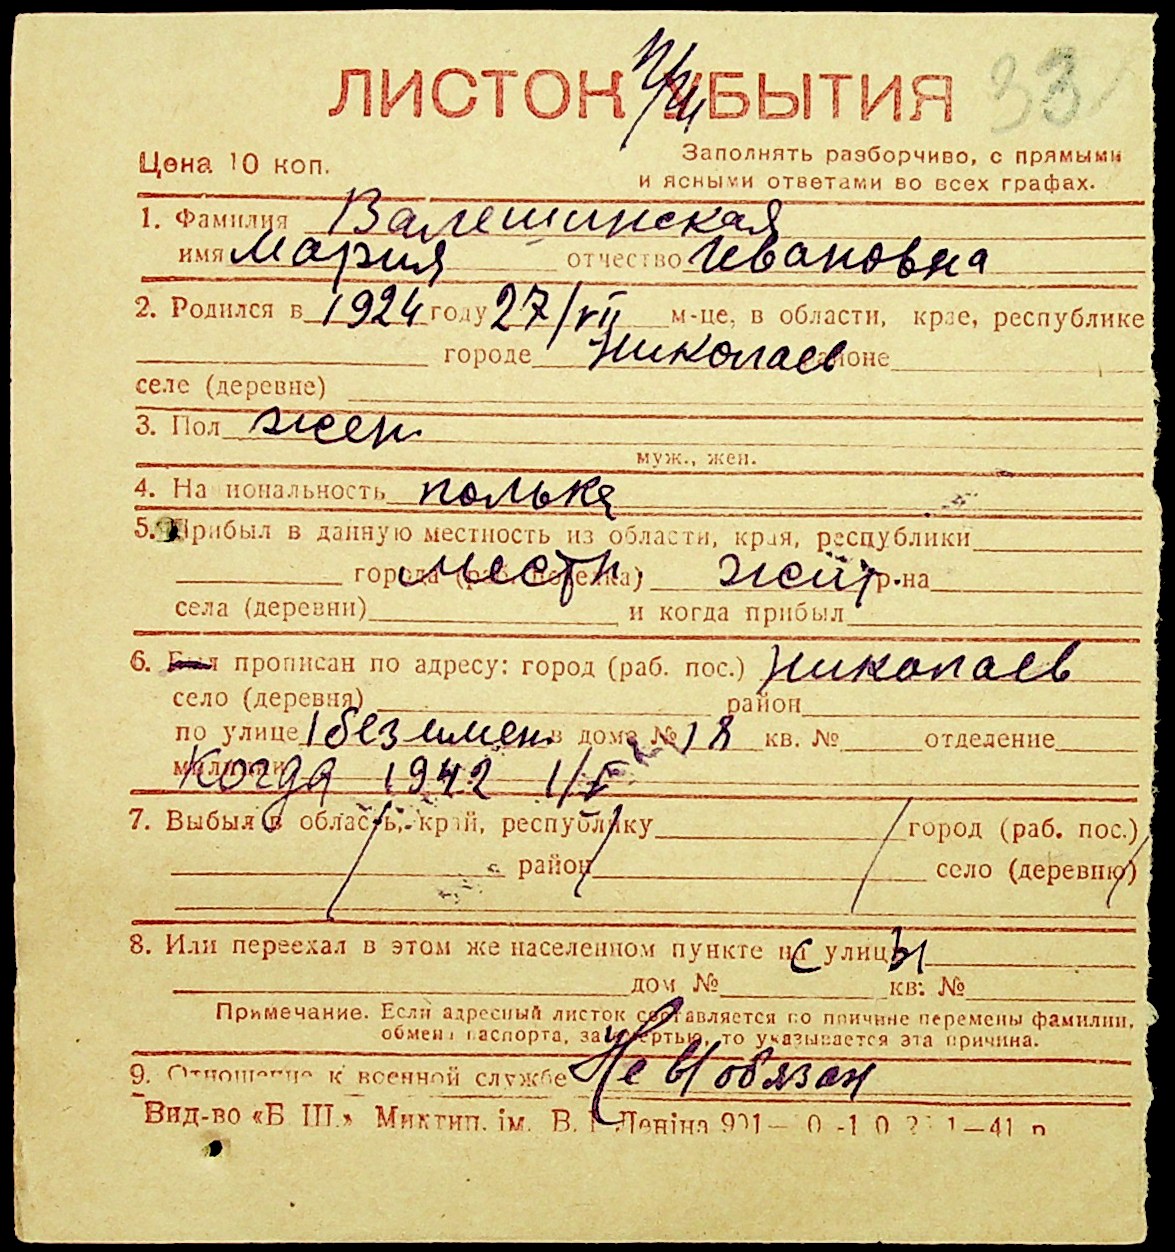 ЛИСТОК УБЫТИЯ 33
Цена 10 коп.
Заполнять разборчиво, с прямыми
и ясными ответами во всех графах.
1. Фамилия Валешинская
имя Мария отчество Ивановна
2. Родился в 1924 году 27/VII м-це, в области, крае, республике
городе Николаев районе
селе (деревне)
3. Пол жен.
муж., жен.
4. Национальность полька
5. Прибыл в данную местность из области, края, республики
города (раб. поселка) местн. жит. р-на
села (деревни) и когда прибыл
6. Был прописан по адресу: город (раб. пос.) Николаев
село (деревня) район
по улице 1 безимен. в доме № 18 кв. № отделение
милиции Когда 1942 1/V
7. Выбыл в область, край, республику город (раб. пос.)
район село (деревню)
8. Или переехал в этом же населенном пункте с улицы
дом № кв. №
Примечание. Если адресный листок составляется по причине перемены фамилии,
обмена паспорта, за смертью, то указывается эта причина.
9. Отношение к военной службе Не в/обязан
Вид-во «Б Ш.» Миктип. ім. В. І. Леніна